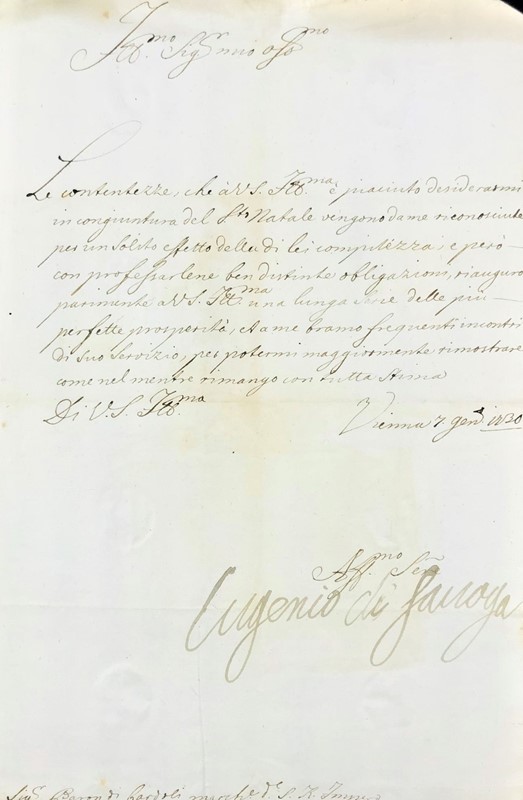 Ill.mo Sig.r mio oss.mo
Le contentezze, che à V.S. Ill.ma è piaciuto desiderarmi
in congiuntura del S.to Natale vengono da me riconosciute
per un solito effetto della di lei compitezza; e però
con professarlene ben distinte obligazioni, riauguro
parimente a V.S. Ill.ma una lunga serie delle più
perfette prosperità, et a me bramo frequenti incontri
di suo servizio, per potermi maggiormente rimostrare
come nel mentre rimango con tutta stima
Di V.S. Ill.ma
Vienna 7. gen.o 1730
Aff.mo Ser.
Eugenio di Savoya
Sig. Baron di